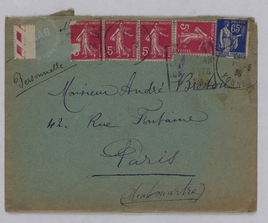 Personnelle
5 5 5 5 65c
Monsieur André Breton
42, Rue Fontaine
Paris
(Montmartre)